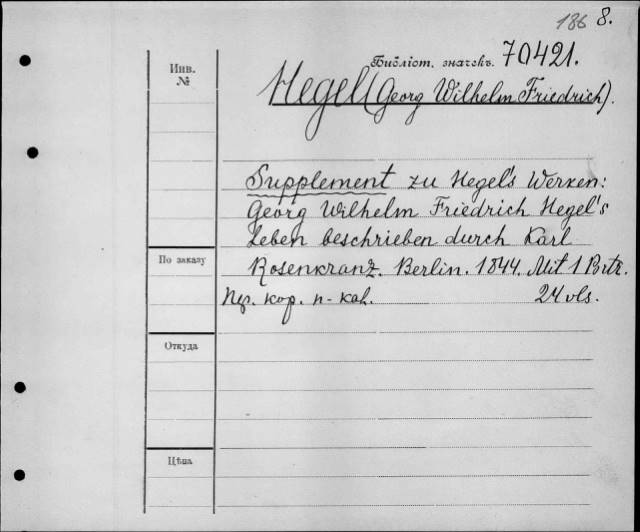 136 8.
Библіот. значекъ. 70421.
Инв.
№
Hegel (Georg Wilhelm Friedrich).
Supplement zu Hegel's Werken:
Georg Wilhelm Friedrich Hegel's
Leben beschrieben durch Karl
По заказу
Rosenkranz. Berlin. 1844. Mit 1 Prtr.
кор. п-как. 24 vls.
Откуда
Цѣна